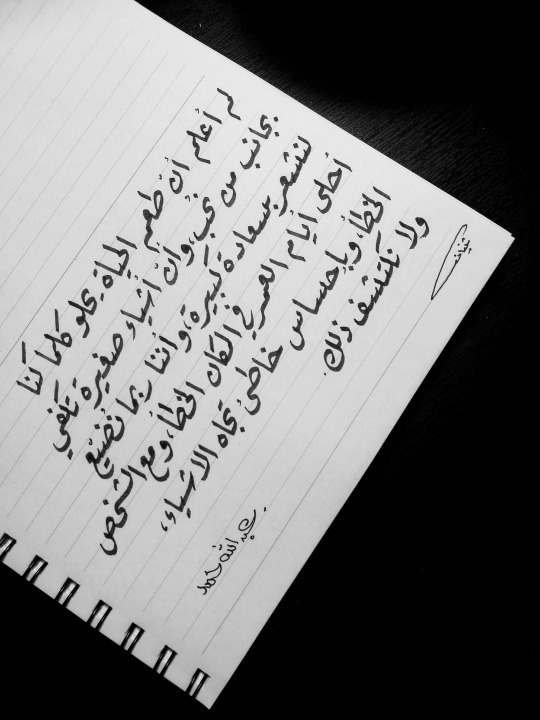 لم أعلم أن طعم الحياة يحلو كلما كنا
بجانب من نحب، وأن أشياء صغيرة تكفي
لنشعر بسعادة كبيرة، وأننا ربما نضيّع
أحلى أيام العمر في المكان الخطأ، ومع الشخص
الخطأ، وبإحساس خاطئ تجاه الأشياء،
ولا نكتشف ذلك.
عبد الله حمد